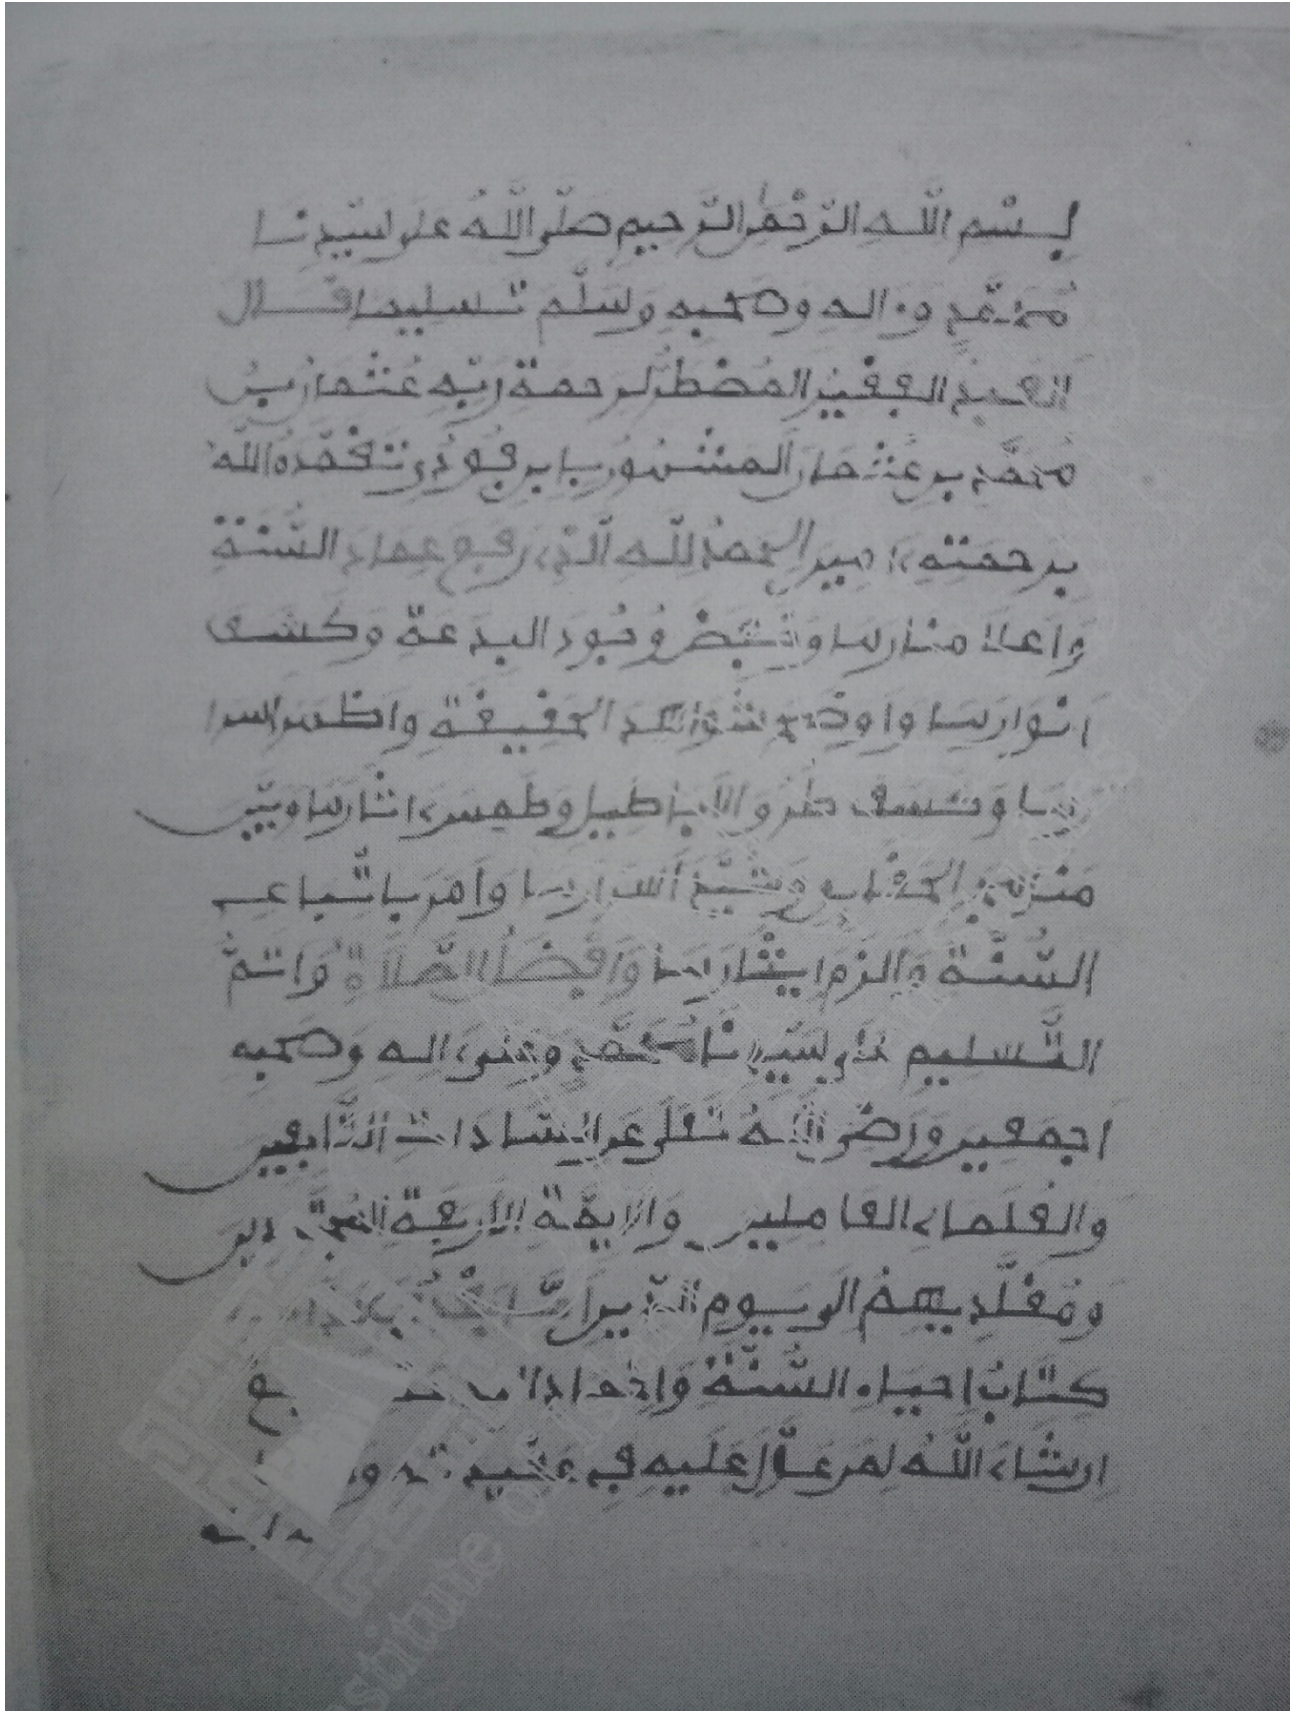 بِسْمِ اللَّهِ الرَّحْمٰنِ الرَّحِيمِ صَلَّى اللَّهُ عَلَى سَيِّدِنَا
مُحَمَّدٍ وءاله وصحبه وَسَلَّمَ تسليما قال
العبد الفقير المُضْطَرُّ لرحمة رَبِّه عُثمان بنُ
مُحَمَّدِ بن عُثمان المشهور بابن فُودِي تَغَمَّدَهُ اللَّه
برحمته ءامين الحمدُ للَّه الَّذِي رفع عِماد السُّنَّةِ
وَاَعلا منارها وَخَبَضَ وُجُودَ البدعة وَكَشف
انوارها واوضح شواهد الحقيقة واظهر اسرا
رها وخسف طرو الاباطيل وطمس ءاثارها وبيّن
من وَشَيَّدَ اَسرارها وَاَمر باتّباع
السُّنَّة وَالزم ايثارها وَاَفْضَلُ الصَّلَاةِ وَاَتَمُّ
التَّسليم على سَيِّدِنَا مُحَمَّدٍ وعلى ءاله وَصحبه
اَجمعين وَرَضِيَ اللَّهُ تَعَلَى عَنِ السَّادات التَّابعين
والعُلَمَاءِ العَاملين وَالايمَّة الاَربَعة المجتهدين
وَمُقَلِّدِيهِمْ الى يوم الدِّين اَمَّا بَعْدُ فهذا
كِتَابُ اِحياءِ السُّنَّةِ وَاِخماد البدعة
ان شَاءَ اللَّهُ لمن عَوَّلَ عَلَيه فِي